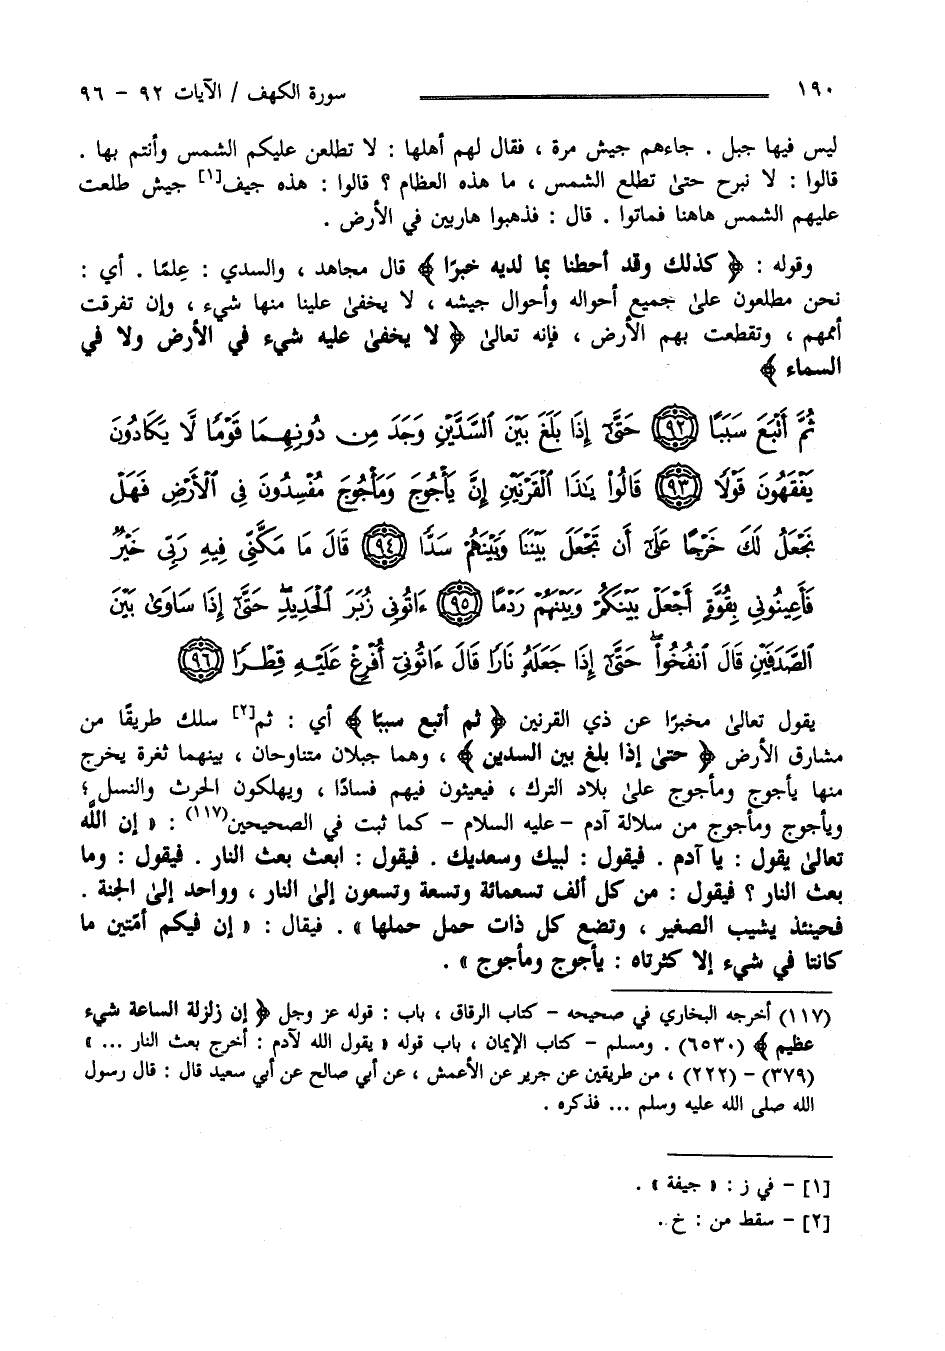 ١٩٠ سورة الكهف / الآيات ٩٢ - ٩٦
ليس فيها جبل . جاءهم جيش مرة ، فقال لهم أهلها : لا تطلعن عليكم الشمس وأنتم بها .
قالوا : لا نبرح حتى تطلع الشمس ، ما هذه العظام ؟ قالوا : هذه جيف[١] جيش طلعت
عليهم الشمس هاهنا فماتوا . قال : فذهبوا هاربين في الأرض .
وقوله : ﴿ كذلك وقد أحطنا بما لديه خبرًا ﴾ قال مجاهد ، والسدي : عِلمًا . أي :
نحن مطلعون على جميع أحواله وأحوال جيشه ، لا يخفى علينا منها شيء ، وإن تفرقت
أممهم ، وتقطعت بهم الأرض ، فإنه تعالى ﴿ لا يخفى عليه شيء في الأرض ولا في
السماء ﴾
ثُمَّ أَتْبَعَ سَبَبًا ٩٢ حَتَّىٰٓ إِذَا بَلَغَ بَيْنَ ٱلسَّدَّيْنِ وَجَدَ مِن دُونِهِمَا قَوْمًا لَّا يَكَادُونَ
يَفْقَهُونَ قَوْلًا ٩٣ قَالُوا۟ يَٰذَا ٱلْقَرْنَيْنِ إِنَّ يَأْجُوجَ وَمَأْجُوجَ مُفْسِدُونَ فِى ٱلْأَرْضِ فَهَلْ
نَجْعَلُ لَكَ خَرْجًا عَلَىٰٓ أَن تَجْعَلَ بَيْنَنَا وَبَيْنَهُمْ سَدًّا ٩٤ قَالَ مَا مَكَّنِّى فِيهِ رَبِّى خَيْرٌ
فَأَعِينُونِى بِقُوَّةٍ أَجْعَلْ بَيْنَكُمْ وَبَيْنَهُمْ رَدْمًا ٩٥ ءَاتُونِى زُبَرَ ٱلْحَدِيدِ حَتَّىٰٓ إِذَا سَاوَىٰ بَيْنَ
ٱلصَّدَفَيْنِ قَالَ ٱنفُخُوا۟ حَتَّىٰٓ إِذَا جَعَلَهُۥ نَارًا قَالَ ءَاتُونِىٓ أُفْرِغْ عَلَيْهِ قِطْرًا ٩٦
يقول تعالى مخبرًا عن ذي القرنين ﴿ ثم أتبع سببًا ﴾ أي : ثم[٢] سلك طريقًا من
مشارق الأرض ﴿ حتى إذا بلغ بين السدين ﴾ ، وهما جبلان متناوحان ، بينهما ثغرة يخرج
منها يأجوج ومأجوج على بلاد الترك ، فيعيثون فيهم فسادًا ، ويهلكون الحرث والنسل ؛
ويأجوج ومأجوج من سلالة آدم - عليه السلام - كما ثبت في الصحيحين(١١٧) : « إن اللَّه
تعالى يقول : يا آدم . فيقول : لبيك وسعديك . فيقول : ابعث بعث النار . فيقول : وما
بعث النار ؟ فيقول : من كل ألف تسعمائة وتسعة وتسعون إلى النار ، وواحد إلى الجنة .
فحينئذ يشيب الصغير ، وتضع كل ذات حمل حملها » . فيقال : « إن فيكم أمّتين ما
كانتا في شيء إلا كثرتاه : يأجوج ومأجوج » .
(١١٧) أخرجه البخاري في صحيحه - كتاب الرقاق ، باب : قوله عز وجل ﴿ إن زلزلة الساعة شيء
عظيم ﴾ (٦٥٣٠) . ومسلم - كتاب الإيمان ، باب قوله « يقول الله لآدم : أخرج بعث النار ... »
(٣٧٩) - (٢٢٢) ، من طريقين عن جرير عن الأعمش ، عن أبي صالح عن أبي سعيد قال : قال رسول
الله صلى الله عليه وسلم ... فذكره .
[١] - في ز : « جيفة » .
[٢] - سقط من : خ .